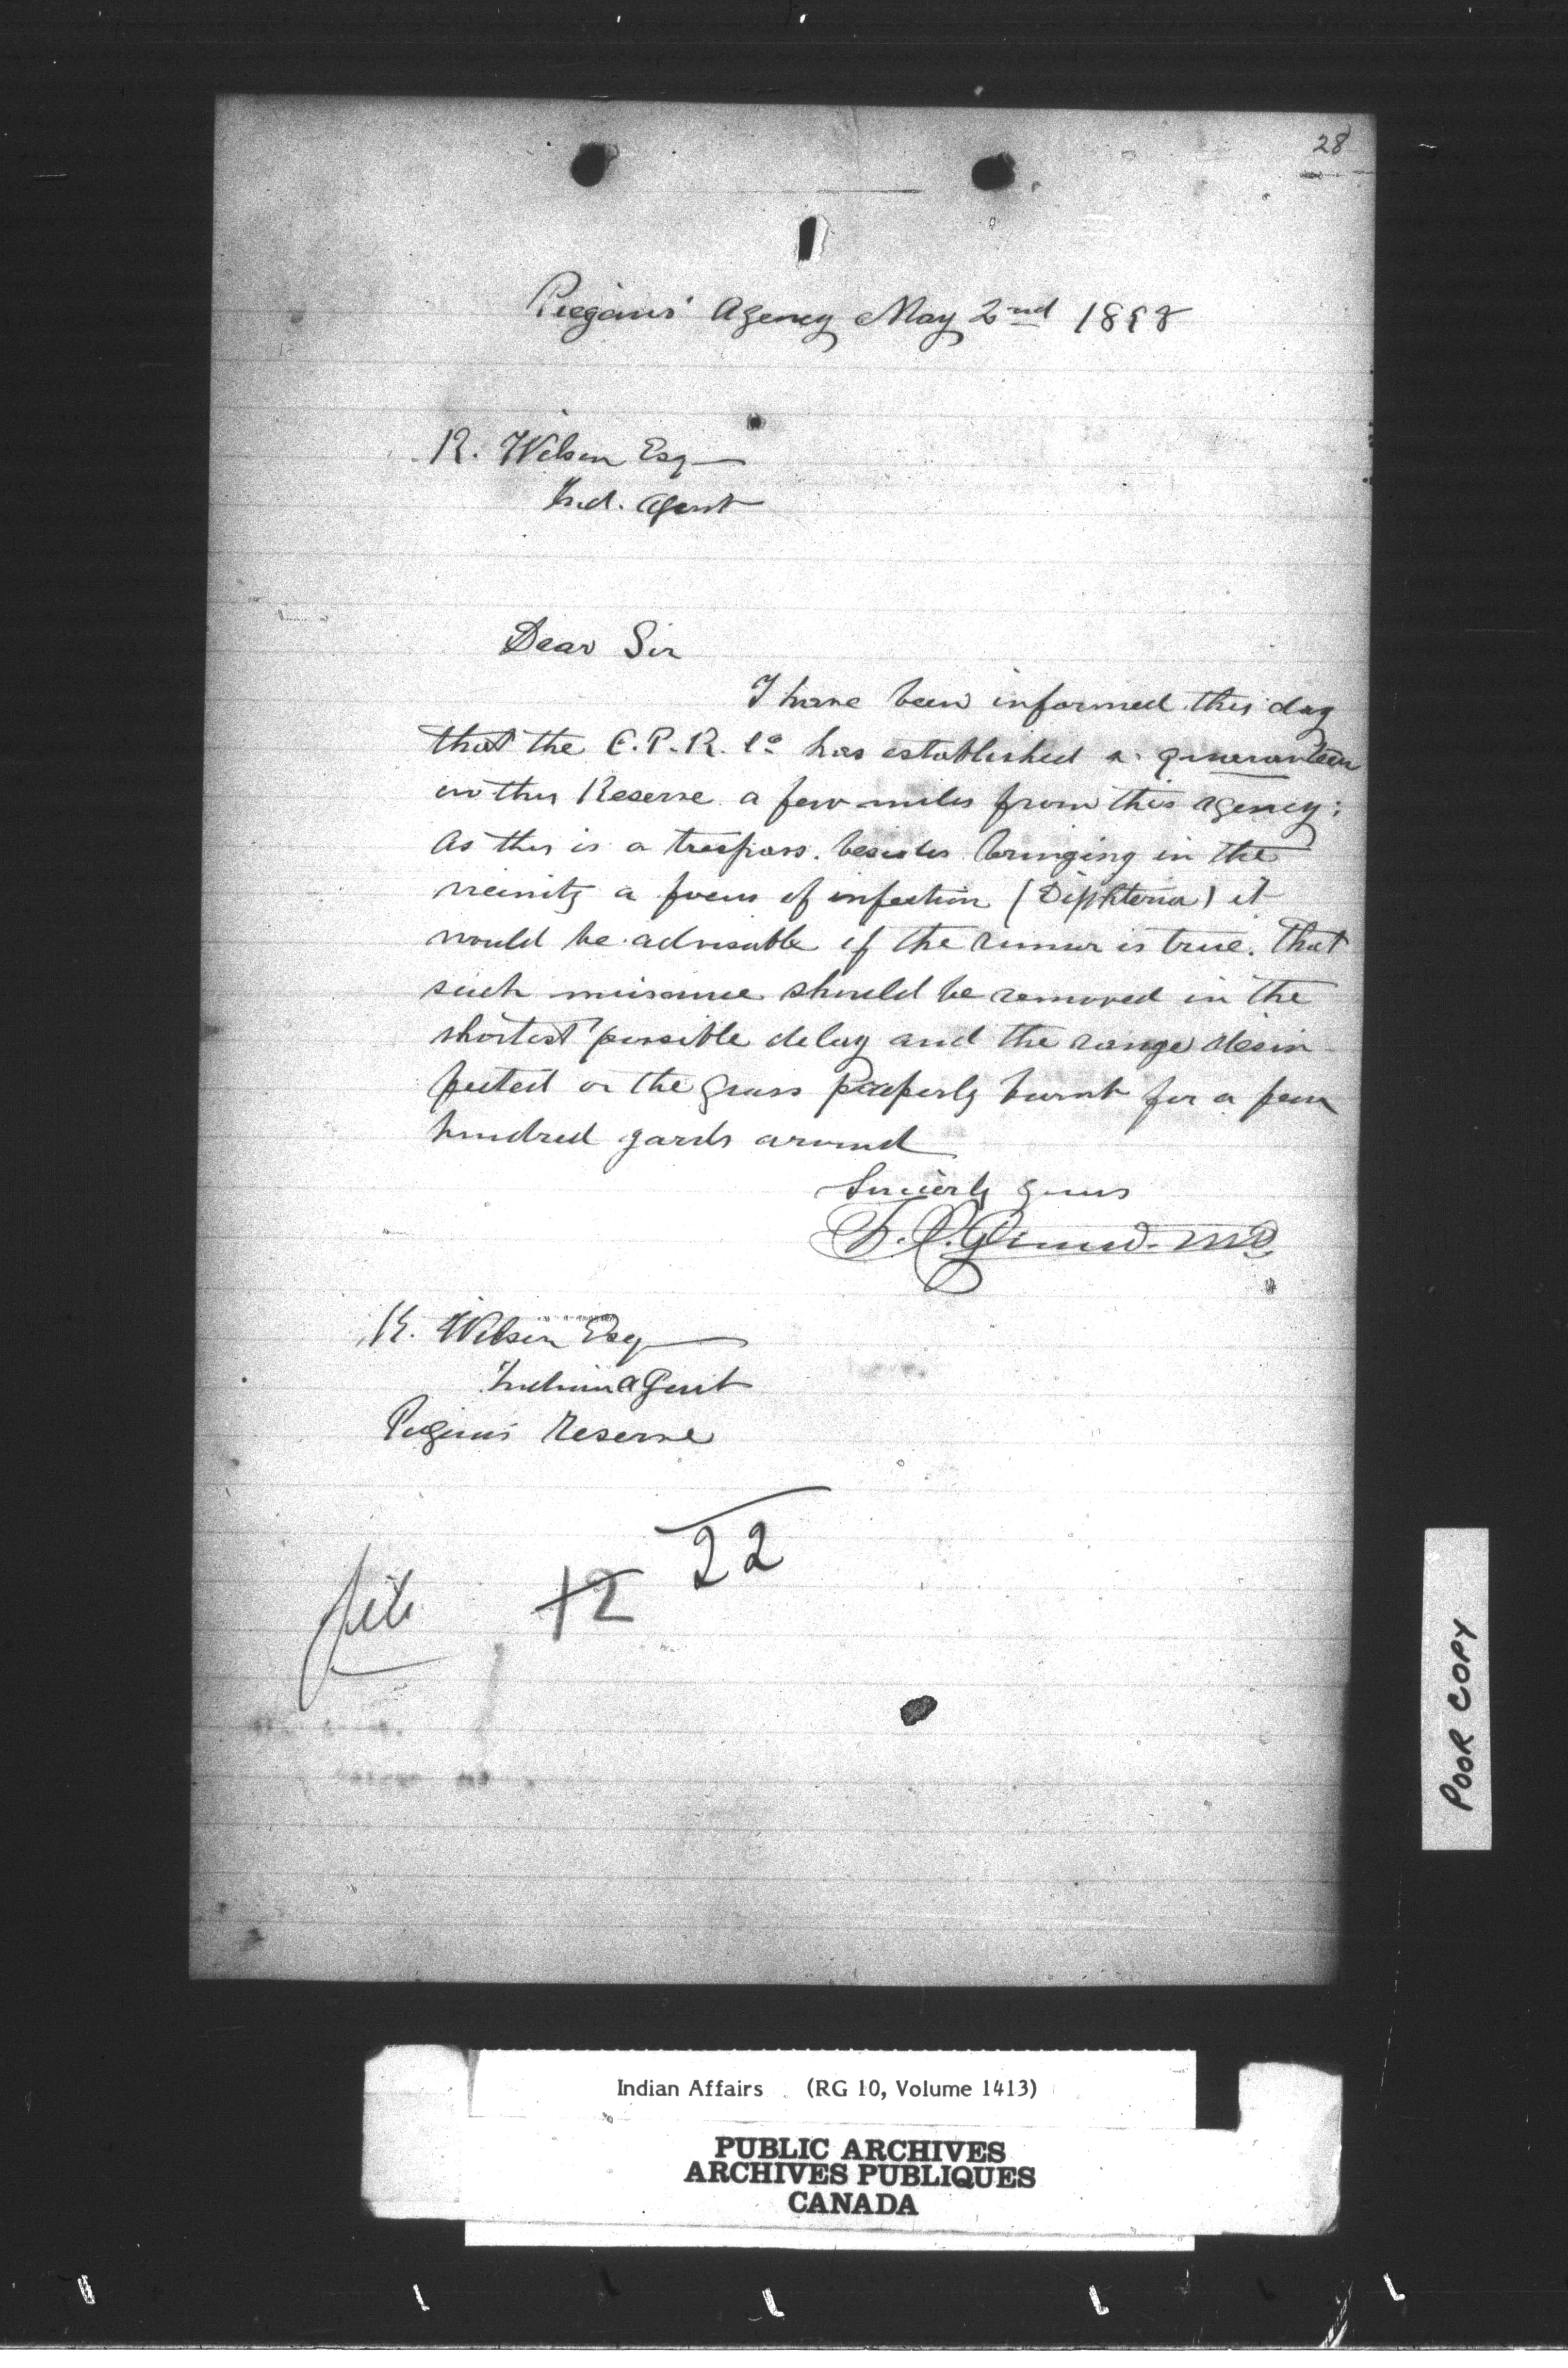 28
Piegans' Agency May 2nd 1898
R. Wilson Esq
Ind. Agent
Dear Sir
I have been informed this day
that the C.P.R. Co has established a
on this Reserve a few miles from this agency;
As this is a trespass. besides bringing in the
vicinity a focus of infection (Diphteria) it
would be advisable if the rumur is true. that
such nuisance should be removed in the
shortest possible delay and the range desin-
fected or the grass properly burnt for a few
hundred yards around
Sincerly yours
M.D.
R. Wilson Esq
Indian Agent
Piegans Reserve
22
file 12
POOR COPY
Indian Affairs (RG 10, Volume 1413)
PUBLIC ARCHIVES
ARCHIVES PUBLIQUES
CANADA